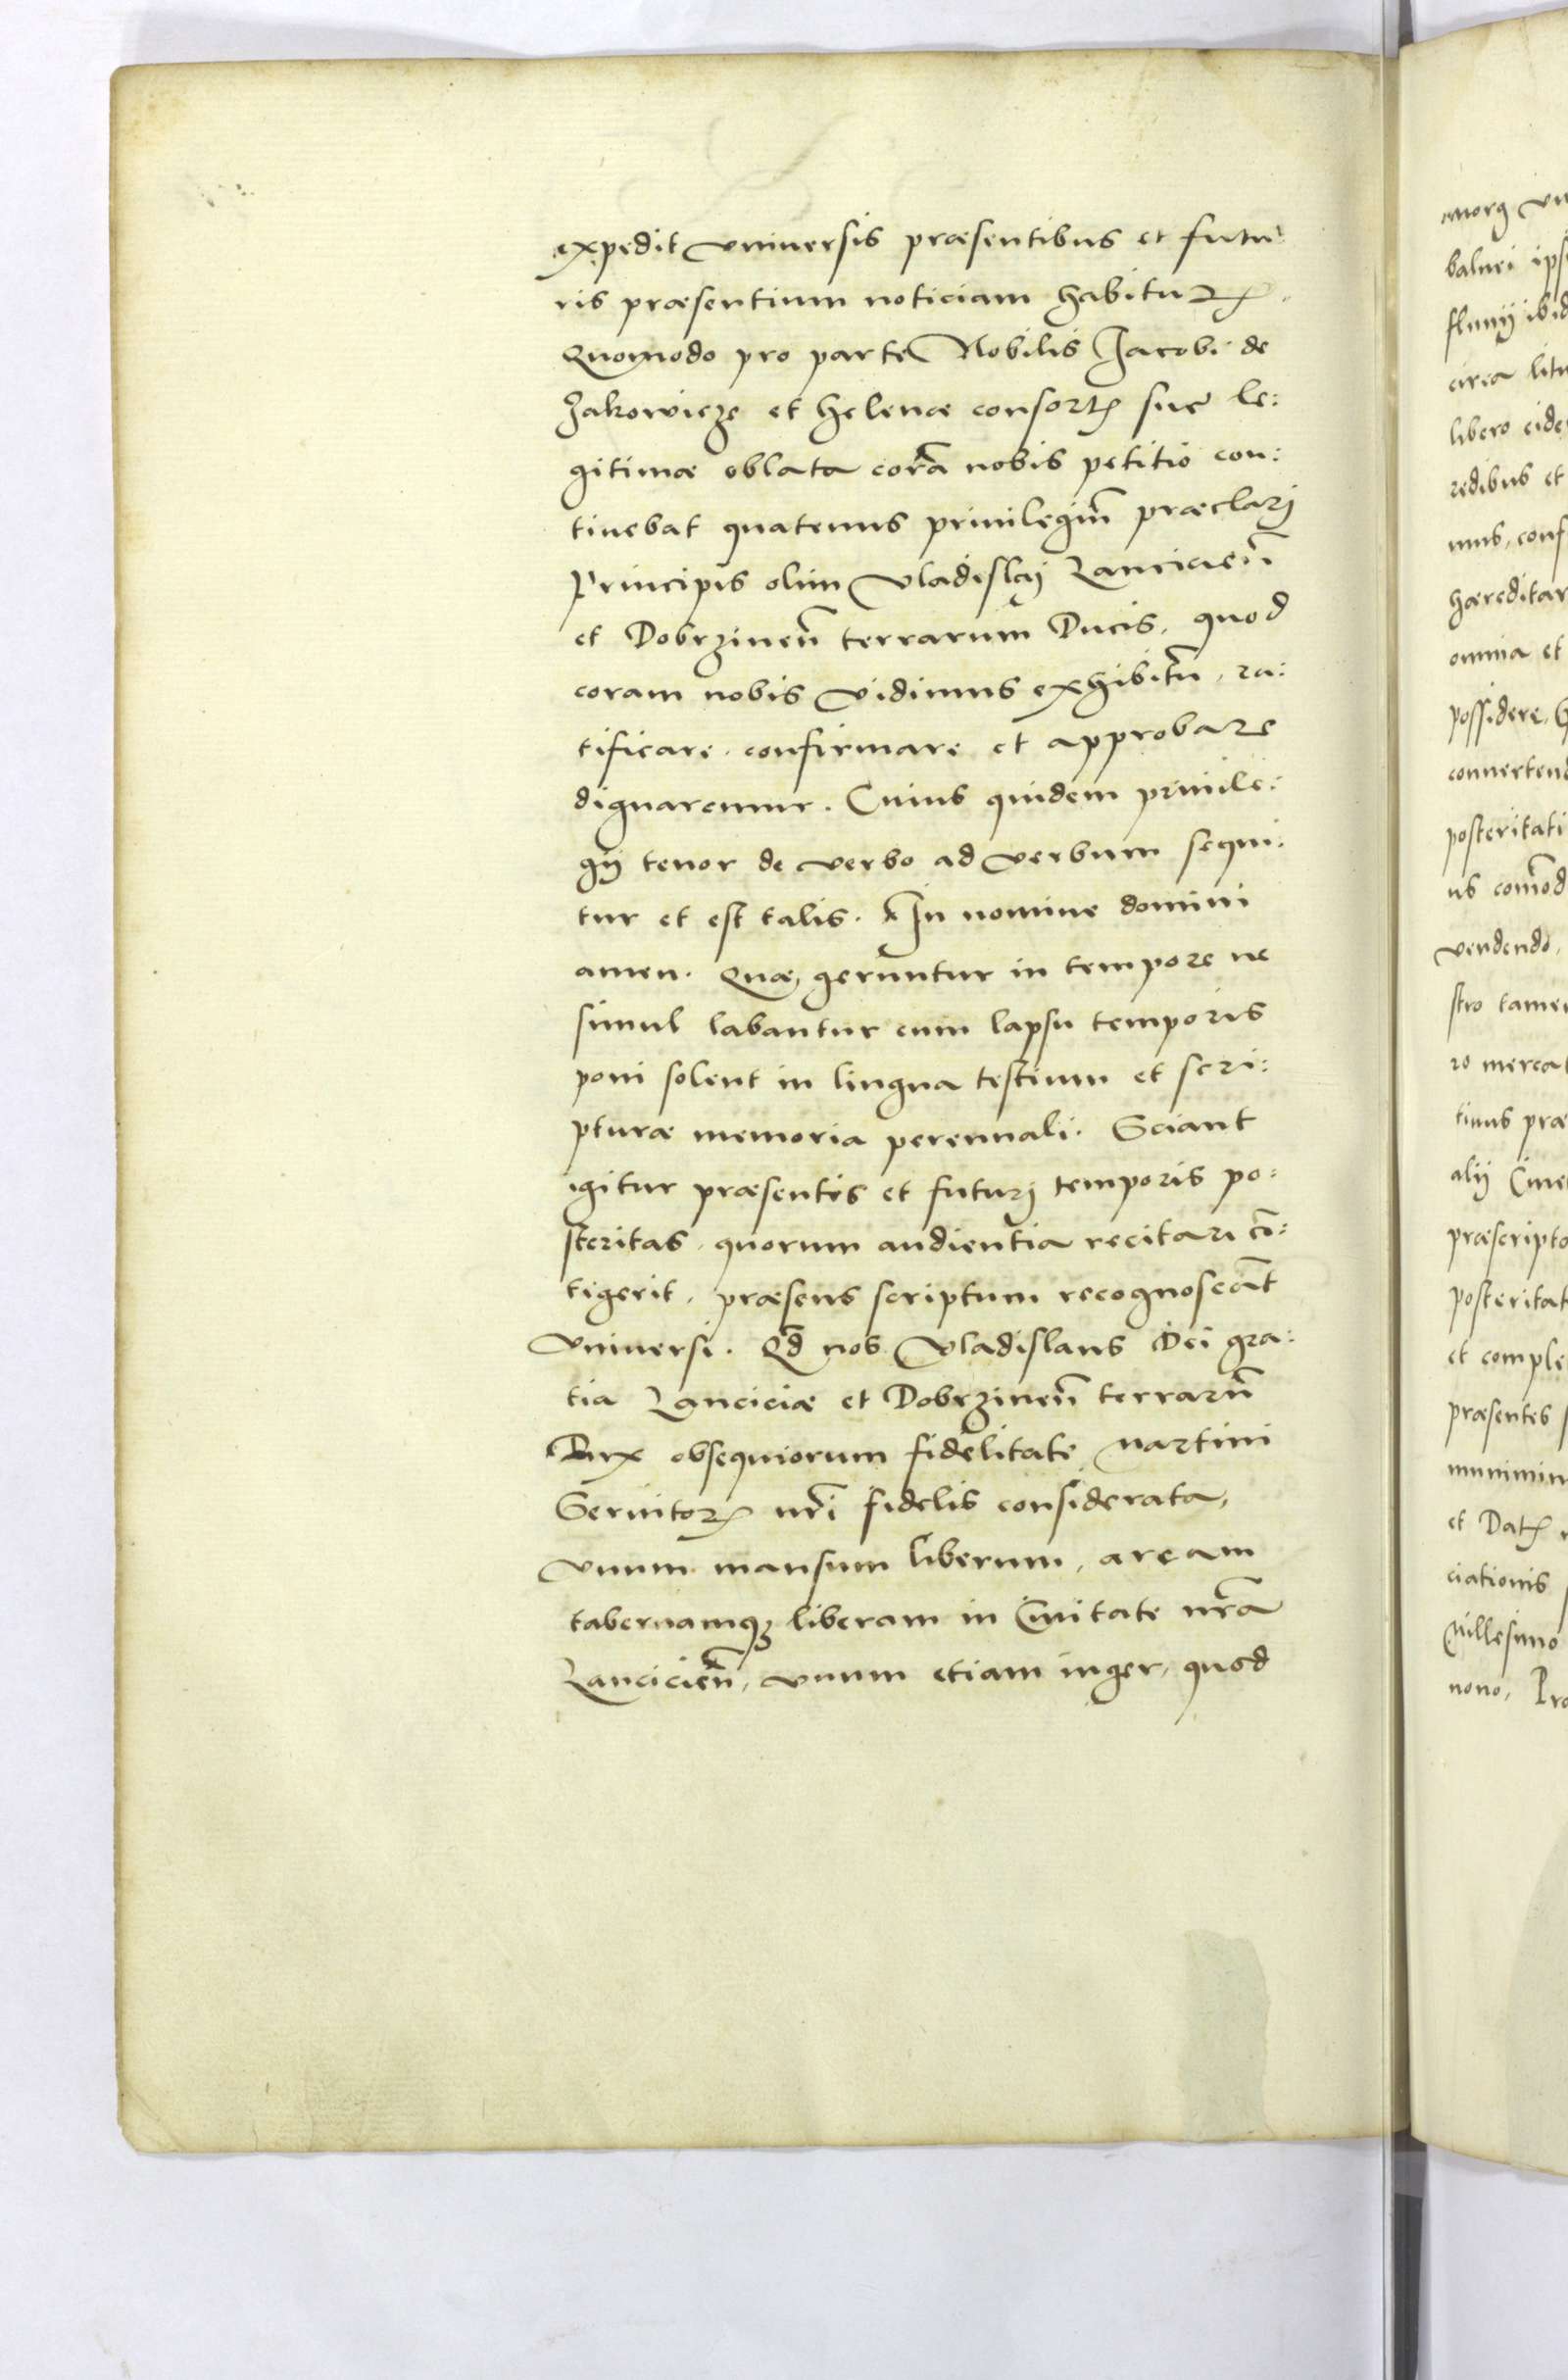 expedit vniuersis præsentibus et futu:
ris præsentium noticiam habituꝝ.
Quomodo pro parte Nobilis Jacobi de
Jakowicze et Helenæ consortꝭ sue le:
gitimæ oblata corã nobis petitio con:
tinebat quatenus priuilegiũ præclarj
Principis olim Vladislaj Lancicieñ
et Dobrzineñ terrarum Ducis, quod
coram nobis vidimus exhibitũ, ra:
tificare, confirmare et approbare
dignaremur. Cuius quidem priuile:
gij tenor de verbo ad verbum sequi:
tur et est talis. In nomine domini
amen. Quæ geruntur in tempore ne
simul labantur cum lapsu temporis
poni solent in lingua testium et scri:
pturæ memoria perennali. Sciant
igitur præsentis et futurj temporis po:
steritas, quorum audientia recitari cõ:
tigerit, præsens scriptum recognoscãt
vniuersi. Qđ nos Vladislaus Dei gra:
tia Lanciciæ et Dobrzineñ terrarũ
Dux obsequiorum fidelitate Martini
Seruitorꝭ nr̃i fidelis considerata,
vnum mansum liberum, aream
tabernamqꝫ liberam in Ciuitate nr̃a
Lancicieñ, vnum etiam iuger, quod
balnei
fluuij
circa
libero
redibus et
mus,
omnia et
possidere,
posteritati
vendendo,
stro
alij
et
præsentes
et Datꝭ
ciationis
Millesimo
nono,